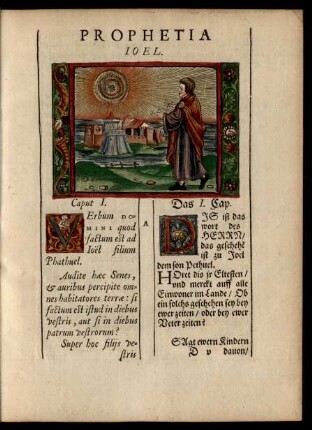 PROPHETIA
IOEL.
Caput I.
VErbum DO-
MINI quod
factum est ad
Ioël filium
Phathuel.
Audite hæc Senes,
& auribus percipite om-
nes habitatores terræ: si
factum est istud in diebus
vestris, aut si in diebus
patrum vestrorum?
Super hoc filijs ve-
stris
A
Das I. Cap.
DIS ist das
wort des
HERRN/
das geschehẽ
ist zu Joel
dem son Pethuel.
HOret dis jr Eltesten/
vnd merckt auff alle
Einwoner im Lande/ Ob
ein solchs geschehen sey bey
ewer zeiten/ oder bey ewer
Veter zeiten?
SAgt ewern Kindern
D v dauon/